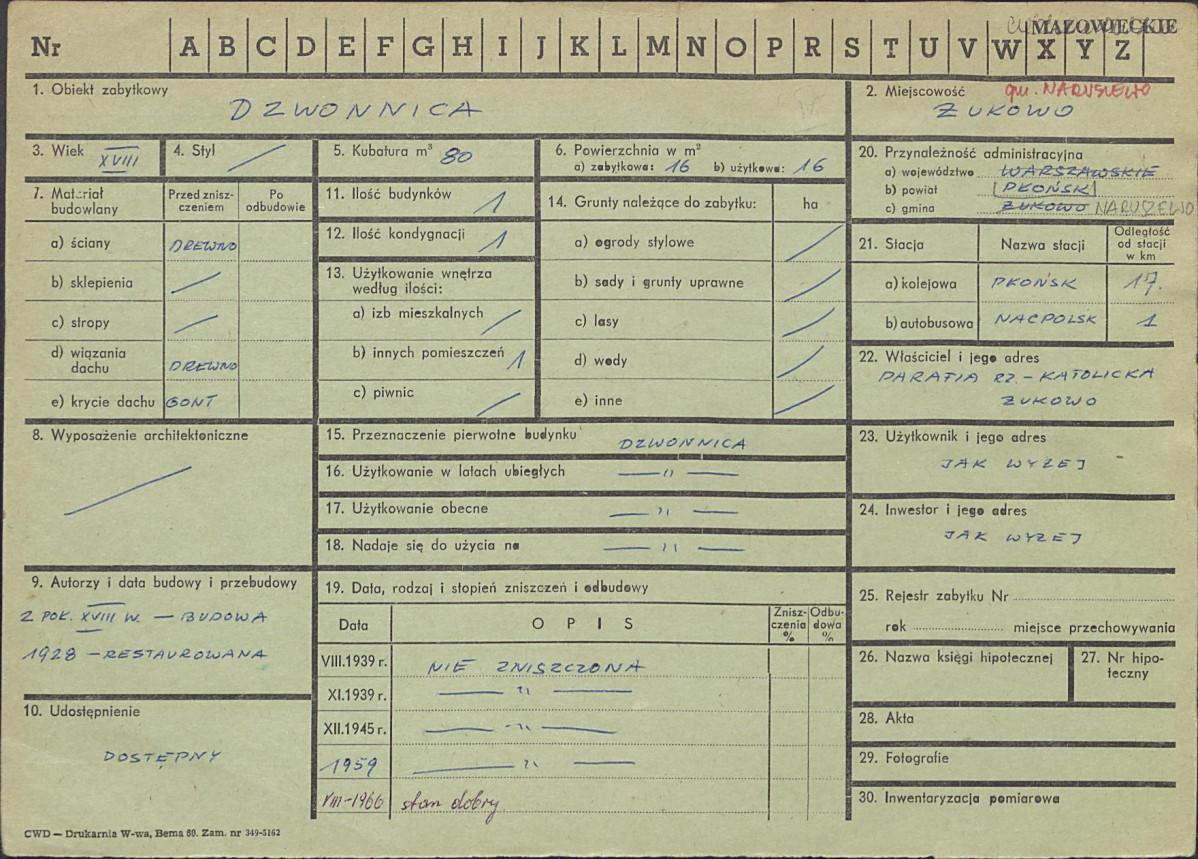 MAZOWIECKIE
Nr A B C D E F G H I J K L M N O P R S T U V W X Y Z
1. Obiekt zabytkowy
DZWONNICA
2. Miejscowość gm. NARUSZEWO
ŻUKOWO
3. Wiek XVIII
4. Styl
5. Kubatura m³ 80
6. Powierzchnia w m²
a) zabytkowa: 16 b) użytkowa: 16
7. Materiał budowlany
Przed zniszczeniem
Po odbudowie
a) ściany DREWNO
b) sklepienia
c) stropy
d) wiązania dachu DREWNO
e) krycie dachu GONT
8. Wyposażenie architektoniczne
9. Autorzy i data budowy i przebudowy
2 POŁ. XVIII W. — BUDOWA
1928 — RESTAUROWANA
10. Udostępnienie
DOSTĘPNY
11. Ilość budynków 1
12. Ilość kondygnacji 1
13. Użytkowanie wnętrza według ilości:
a) izb mieszkalnych
b) innych pomieszczeń 1
c) piwnic
14. Grunty należące do zabytku: ha
a) ogrody stylowe
b) sady i grunty uprawne
c) lasy
d) wody
e) inne
15. Przeznaczenie pierwotne budynku DZWONNICA
16. Użytkowanie w latach ubiegłych — „ —
17. Użytkowanie obecne — „ —
18. Nadaje się do użycia na — „ —
19. Data, rodzaj i stopień zniszczeń i odbudowy
Data OPIS Zniszczenia % Odbudowa %
VIII.1939 r. NIE ZNISZCZONA
XI.1939 r. — „ —
XII.1945 r. — „ —
1959 — „ —
VIII-1966 stan dobry
20. Przynależność administracyjna
a) województwo WARSZAWSKIE
b) powiat [PŁOŃSK]
c) gmina ŻUKOWO NARUSZEWO
21. Stacja Nazwa stacji Odległość od stacji w km
a) kolejowa PŁOŃSK 17.
b) autobusowa NACPOLSK 1
22. Właściciel i jego adres
PARAFIA RZ.-KATOLICKA
ŻUKOWO
23. Użytkownik i jego adres
JAK WYŻEJ
24. Inwestor i jego adres
JAK WYŻEJ
25. Rejestr zabytku Nr
rok miejsce przechowywania
26. Nazwa księgi hipotecznej
27. Nr hipoteczny
28. Akta
29. Fotografie
30. Inwentaryzacja pomiarowa
CWD — Drukarnia W-wa, Bema 60. Zam. nr 349-5162